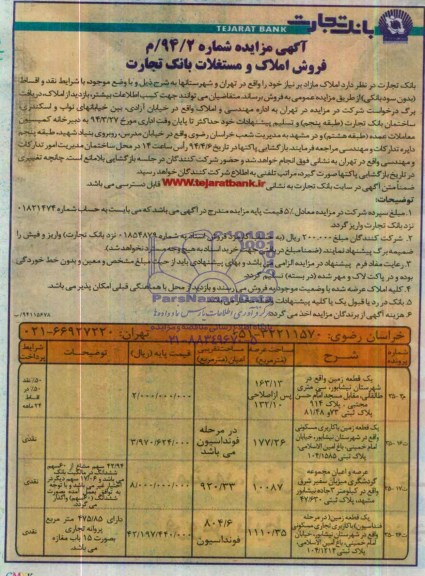 بانک تجارت
TEJARAT BANK
آگهی مزایده شماره ۹۴/۲/م
فروش املاک و مستغلات بانک تجارت
بانک تجارت در نظر دارد املاک مازاد بر نیاز خود را واقع در تهران و شهرستانها به شرح ذیل و با وضع موجود، با شرایط نقد و اقساط
(بدون سود بانکی) از طریق مزایده عمومی به فروش برساند. متقاضیان می توانند جهت کسب اطلاعات بیشتر، بازدید از املاک، دریافت
برگ درخواست شرکت در مزایده در تهران به اداره مهندسی و املاک واقع در خیابان آزادی، بین خیابانهای نواب و اسکندری،
ساختمان بانک تجارت (طبقه پنجم) و تسلیم پیشنهادات خود حداکثر تا پایان وقت اداری مورخ ۹۴/۳/۲۷ به دبیرخانه کمیسیون
معاملات عمده (طبقه هشتم) و در مشهد به مدیریت شعب خراسان رضوی واقع در خیابان مدرس، روبروی بنیاد شهید، طبقه پنجم
دایره تدارکات و مهندسی مراجعه فرمایند. بازگشایی پاکتها در تاریخ ۹۴/۴/۶ رأس ساعت ۱۴ در محل ساختمان مدیریت امور تدارکات
و مهندسی واقع در تهران به نشانی فوق انجام خواهد شد و حضور شرکت کنندگان در جلسه بازگشایی بلامانع است. چنانچه تغییری
در تاریخ بازگشایی پاکتها صورت گیرد، مراتب تلفنی به اطلاع شرکت کنندگان خواهد رسید.
ضمناً متن آگهی در سایت بانک تجارت به نشانی www.tejaratbank.ir قابل دسترسی می باشد.
توضیحات:
۱. مبلغ سپرده شرکت در مزایده معادل ۵٪ قیمت پایه مزایده مندرج در آگهی می باشد که می بایست به حساب شماره ۰۱۸۳۱۴۷۴
نزد بانک تجارت واریز گردد.
۲. شرکت کنندگان مبلغ ۲۰۰/۰۰۰ ریال
نزد بانک تجارت) واریز و فیش را
ضمیمه برگ پیشنهاد نمایند.
۳. رعایت مفاد فرم پیشنهاد در مزایده الزامی می باشد و بهای پیشنهادی باید از حیث مبلغ مشخص و معین و بدون خط خوردگی
بوده و در پاکت لاک و مهر شده (در بسته) تسلیم گردد.
۴. کلیه املاک عرضه شده با وضعیت موجود به فروش می رسند و بازدید از محل با هماهنگی قبلی امکان پذیر می باشد.
۵. بانک در رد یا قبول یک یا کلیه پیشنهادات
۶. هزینه آگهی از برندگان مزایده اخذ می گردد.
ParsNamadData
۰۲۱-۸۸۳۴۹۶۷۰
خراسان رضوی: ۳۲۲۱۱۵۷۰-۰۵۱ تهران: ۶۶۹۲۷۲۳۰-۰۲۱
شماره پرونده شرح مساحت عرصه (مترمربع) مساحت زیربنا اعیان (مترمربع) قیمت پایه (ریال) توضیحات شرایط پرداخت
یک قطعه زمین واقع در شهرستان نیشابور، سی متری طالقانی، مقابل مسجد امام حسن مجتبی، پلاک ۹۱۴ ۱۶۳/۱۳ پس از اصلاحی ۱۳۲/۱۰ ۲/۰۰۰/۰۰۰/۰۰۰ ۵۰٪ نقد ۵۰٪ در اقساط ۲۴ ماهه
یک قطعه زمین با کاربری مسکونی واقع در شهرستان نیشابور، خیابان امام خمینی، باغ امین الاسلامی، پلاک ثبتی ۱۰۴/۱۵۸۵ ۱۷۷/۲۶ در مرحله فونداسیون می باشد ۳/۹۷۰/۶۲۴/۰۰۰ نقدی
عرصه و اعیان مجموعه گردشگری میزبان سفیر شرق واقع در کیلومتر ۲ جاده نیشابور مشهد، پلاک ثبتی ۴۷/۶۳۰ ۱۰۰۸۷ ۹۲۰/۳۳ ۸/۰۰۰/۰۰۰/۰۰۰ نقدی
یک قطعه زمین (در مرحله فنداسیون) با کاربری تجاری مسکونی واقع در شهرستان نیشابور، خیابان امام خمینی، باغ امین الاسلامی، پلاک ثبتی ۱۰۴/۱۲۱۴ ۱۱۱۰/۳۵ ۸۰۴/۶ فونداسیون ۴۲/۱۹۷/۴۴۰/۰۰۰ دارای ۴۷۵/۸۵ متر مربع پروانه تجاری بصورت ۱۵ باب مغازه می باشد نقدی